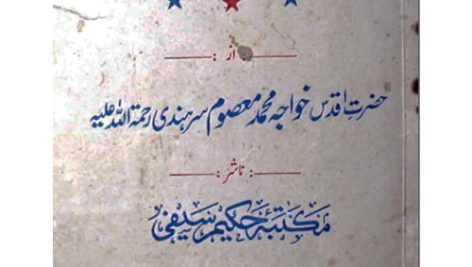 از:
حضرت اقدس خواجہ محمد معصوم سرہندی رحمۃ اللہ علیہ
ناشر:
مکتبۂ حکیم سیفی